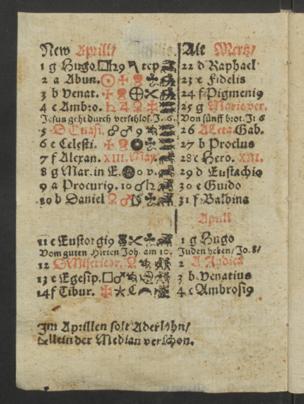 New Aprill/
Alt Mertz/
1 g Hugo.
22 d Raphael
2 a Abun.
23 e Fidelis
3 b Venat.
24 f Pigmeni9
4 c Ambro.
25 g Marie ver.
Jesus geht durch verschloß. J. 6.
Von fünff brot. Jo 6
5 D Quasi.
26 A Leta Gab.
6 e Celesti.
27 b Proclus
7 f Alexan. XIII. May.
28 c Hero. XIII.
8 g Mar. in E.
29 d Eustachi9
9 a Procuri9.
30 e Guido
10 b Daniel
31 f Balbina
Aprill
11 c Eustorgi9
1 g Hugo
Vom guten Hirten Joh. am 10.
Juden 
 Jo. 8/
12 D Misericor.
2 A Judica
13 e Egesip.
3 b Venatius
14 f Tibur.
4 c Ambrosi9
Im Aprillen solt Aderlohn/
Allein der Median verschon.